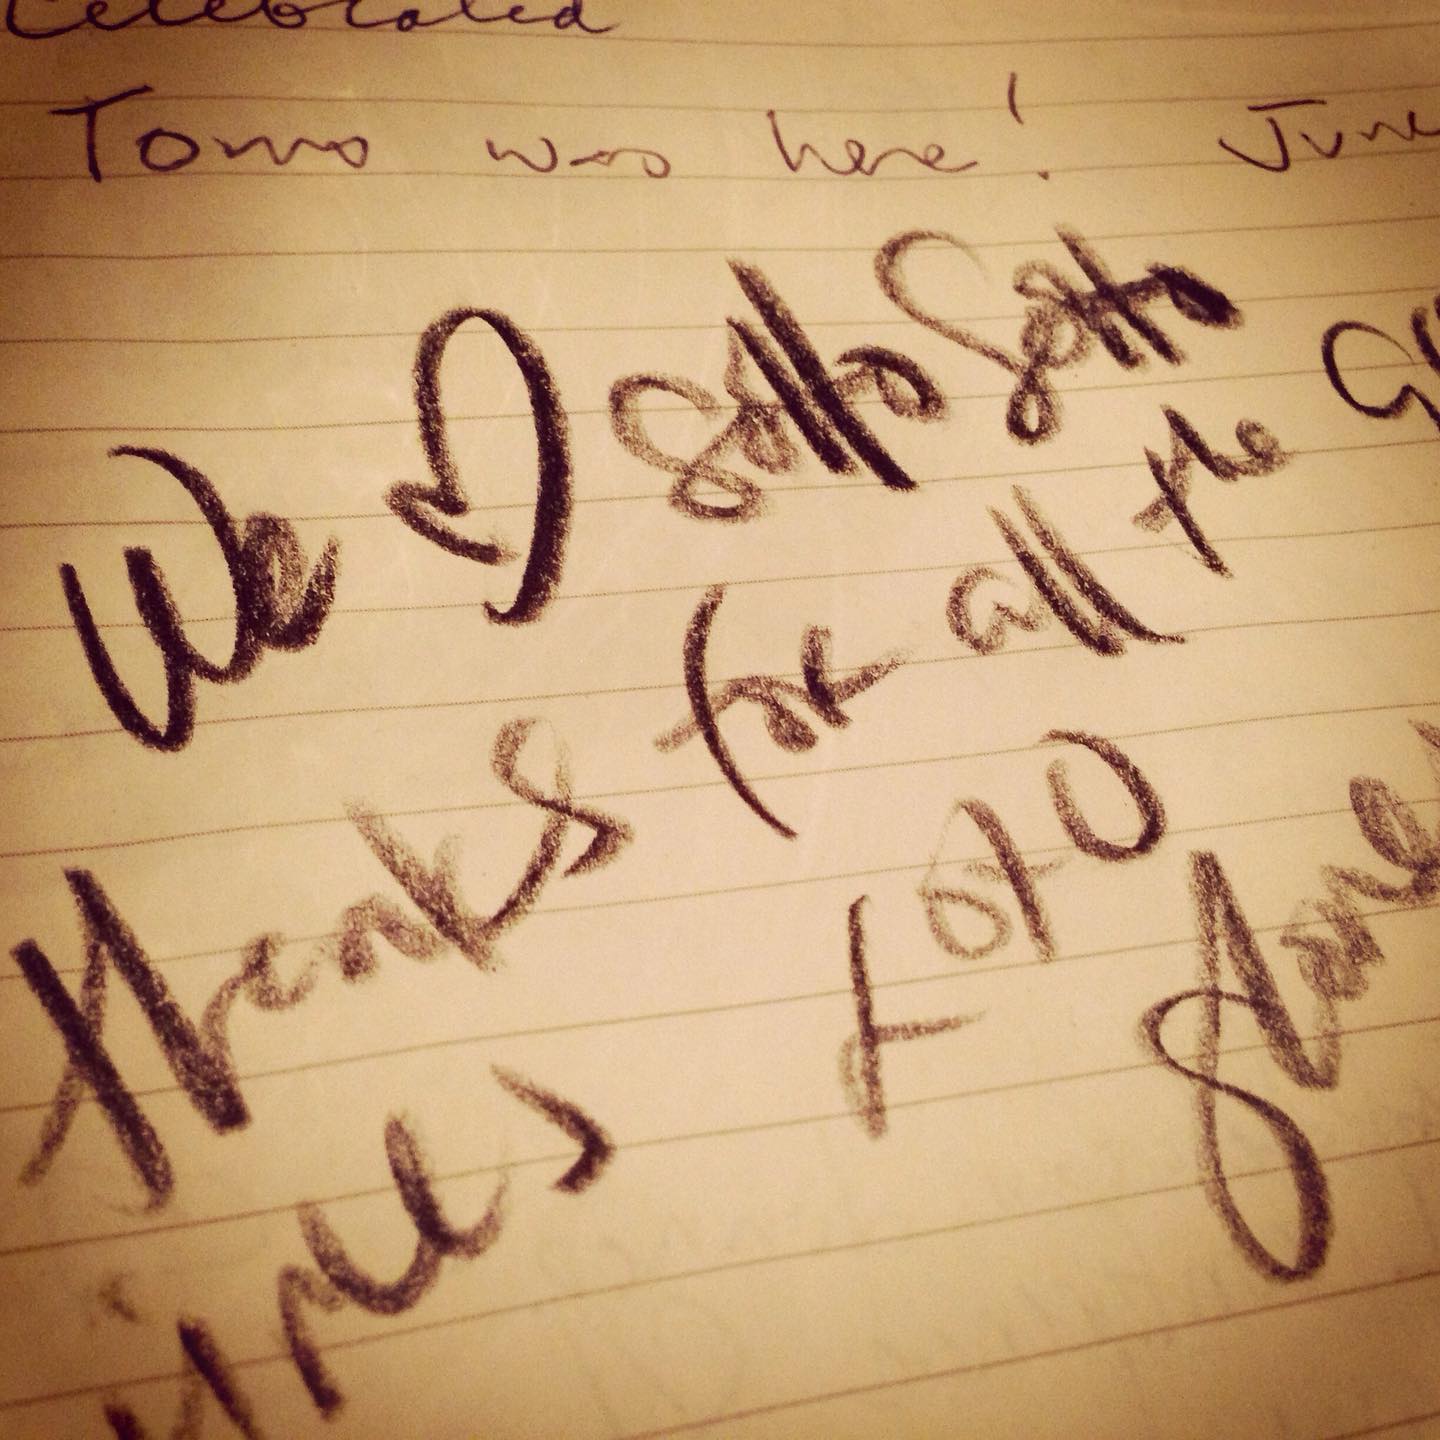 Celebrated
Tomo was here! June
We ♡ Sotto Sotto
Thanks for all the
xoxo